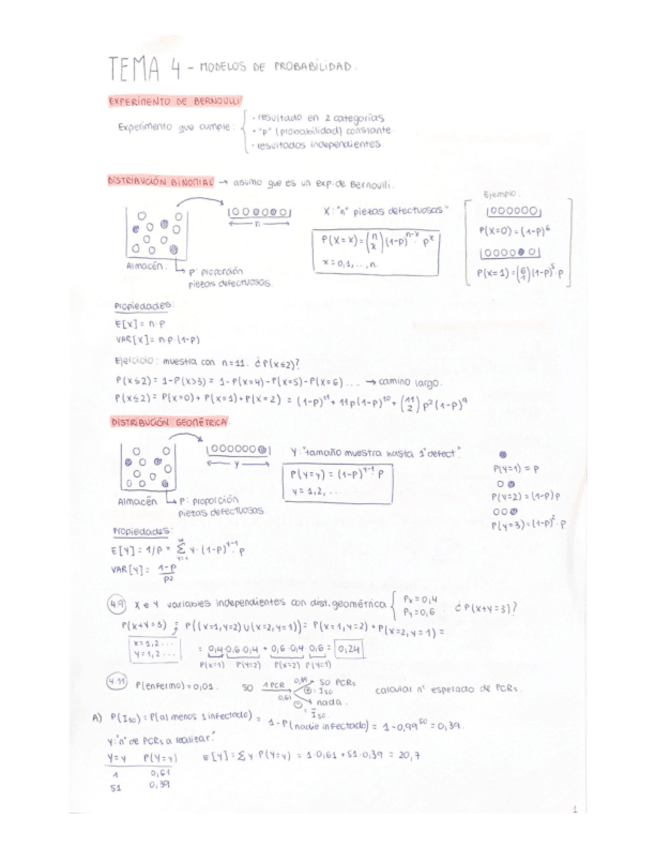 TEMA 4 - MODELOS DE PROBABILIDAD.
EXPERIMENTO DE BERNOULLI
Experimento que cumple:
- resultado en 2 categorías
- "p" (probabilidad) constante
- resultados independientes
DISTRIBUCIÓN BINOMIAL → asumo que es un exp. de Bernouilli.
Ejemplo.
n
Almacén.
P: proporción
piezas defectuosas.
X: "nº piezas defectuosas"
P(X=x) = (n x) (1-p)^n-x · p^x
x = 0,1,...,n
P(X=0) = (1-p)^6
P(X=1) = (6 1)(1-p)^5 p
Propiedades:
E[X] = n·p
VAR[X] = n·p·(1-p)
Ejercicio: muestra con n=11. ¿P(x≤2)?
P(x≤2) = 1-P(x>3) = 1-P(x=4)-P(x=5)-P(x=6)... → camino largo.
P(x≤2) = P(x=0)+P(x=1)+P(x=2) = (1-p)^11 + 11p(1-p)^10 + (11 2) p^2 (1-p)^9
DISTRIBUCIÓN GEOMÉTRICA.
y
Almacén
P: proporción
piezas defectuosas.
Y: "tamaño muestra hasta 1º defect".
P(Y=y) = (1-p)^y-1 · p
y = 1,2,...
P(y=1) = p
P(y=2) = (1-p)p
P(y=3) = (1-p)^2 · p
Propiedades:
E[Y] = 1/p = Σ y·(1-p)^y-1 · p
VAR[Y] = 1-p / p²
4.9 X e Y variables independientes con dist. geométrica { Px = 0,4 Py = 0,6 . ¿P(x+y=3)?
P(x+y=3) = P((x=1,y=2)∪(x=2,y=1)) = P(x=1,y=2) + P(x=2,y=1) =
x=1,2...
y=1,2...
= 0,4·0,6·0,4 + 0,6·0,4·0,6 = 0,24
P(x=1) P(y=2) P(x=2) P(y=1)
4.11 P(enfermo) = 0,01.
50 1 PCR
0,61
50 PCRs
nada.
calcular nº esperado de PCRs.
A) P(I50) = P(al menos 1 infectado) = 1-P(nadie infectado) = 1-0,99^50 = 0,39.
Y: "nº de PCRs a realizar."
Y=y P(Y=y)
1 0,61
51 0,39
E[Y] = Σ y·P(Y=y) = 1·0,61 + 51·0,39 = 20,7
1